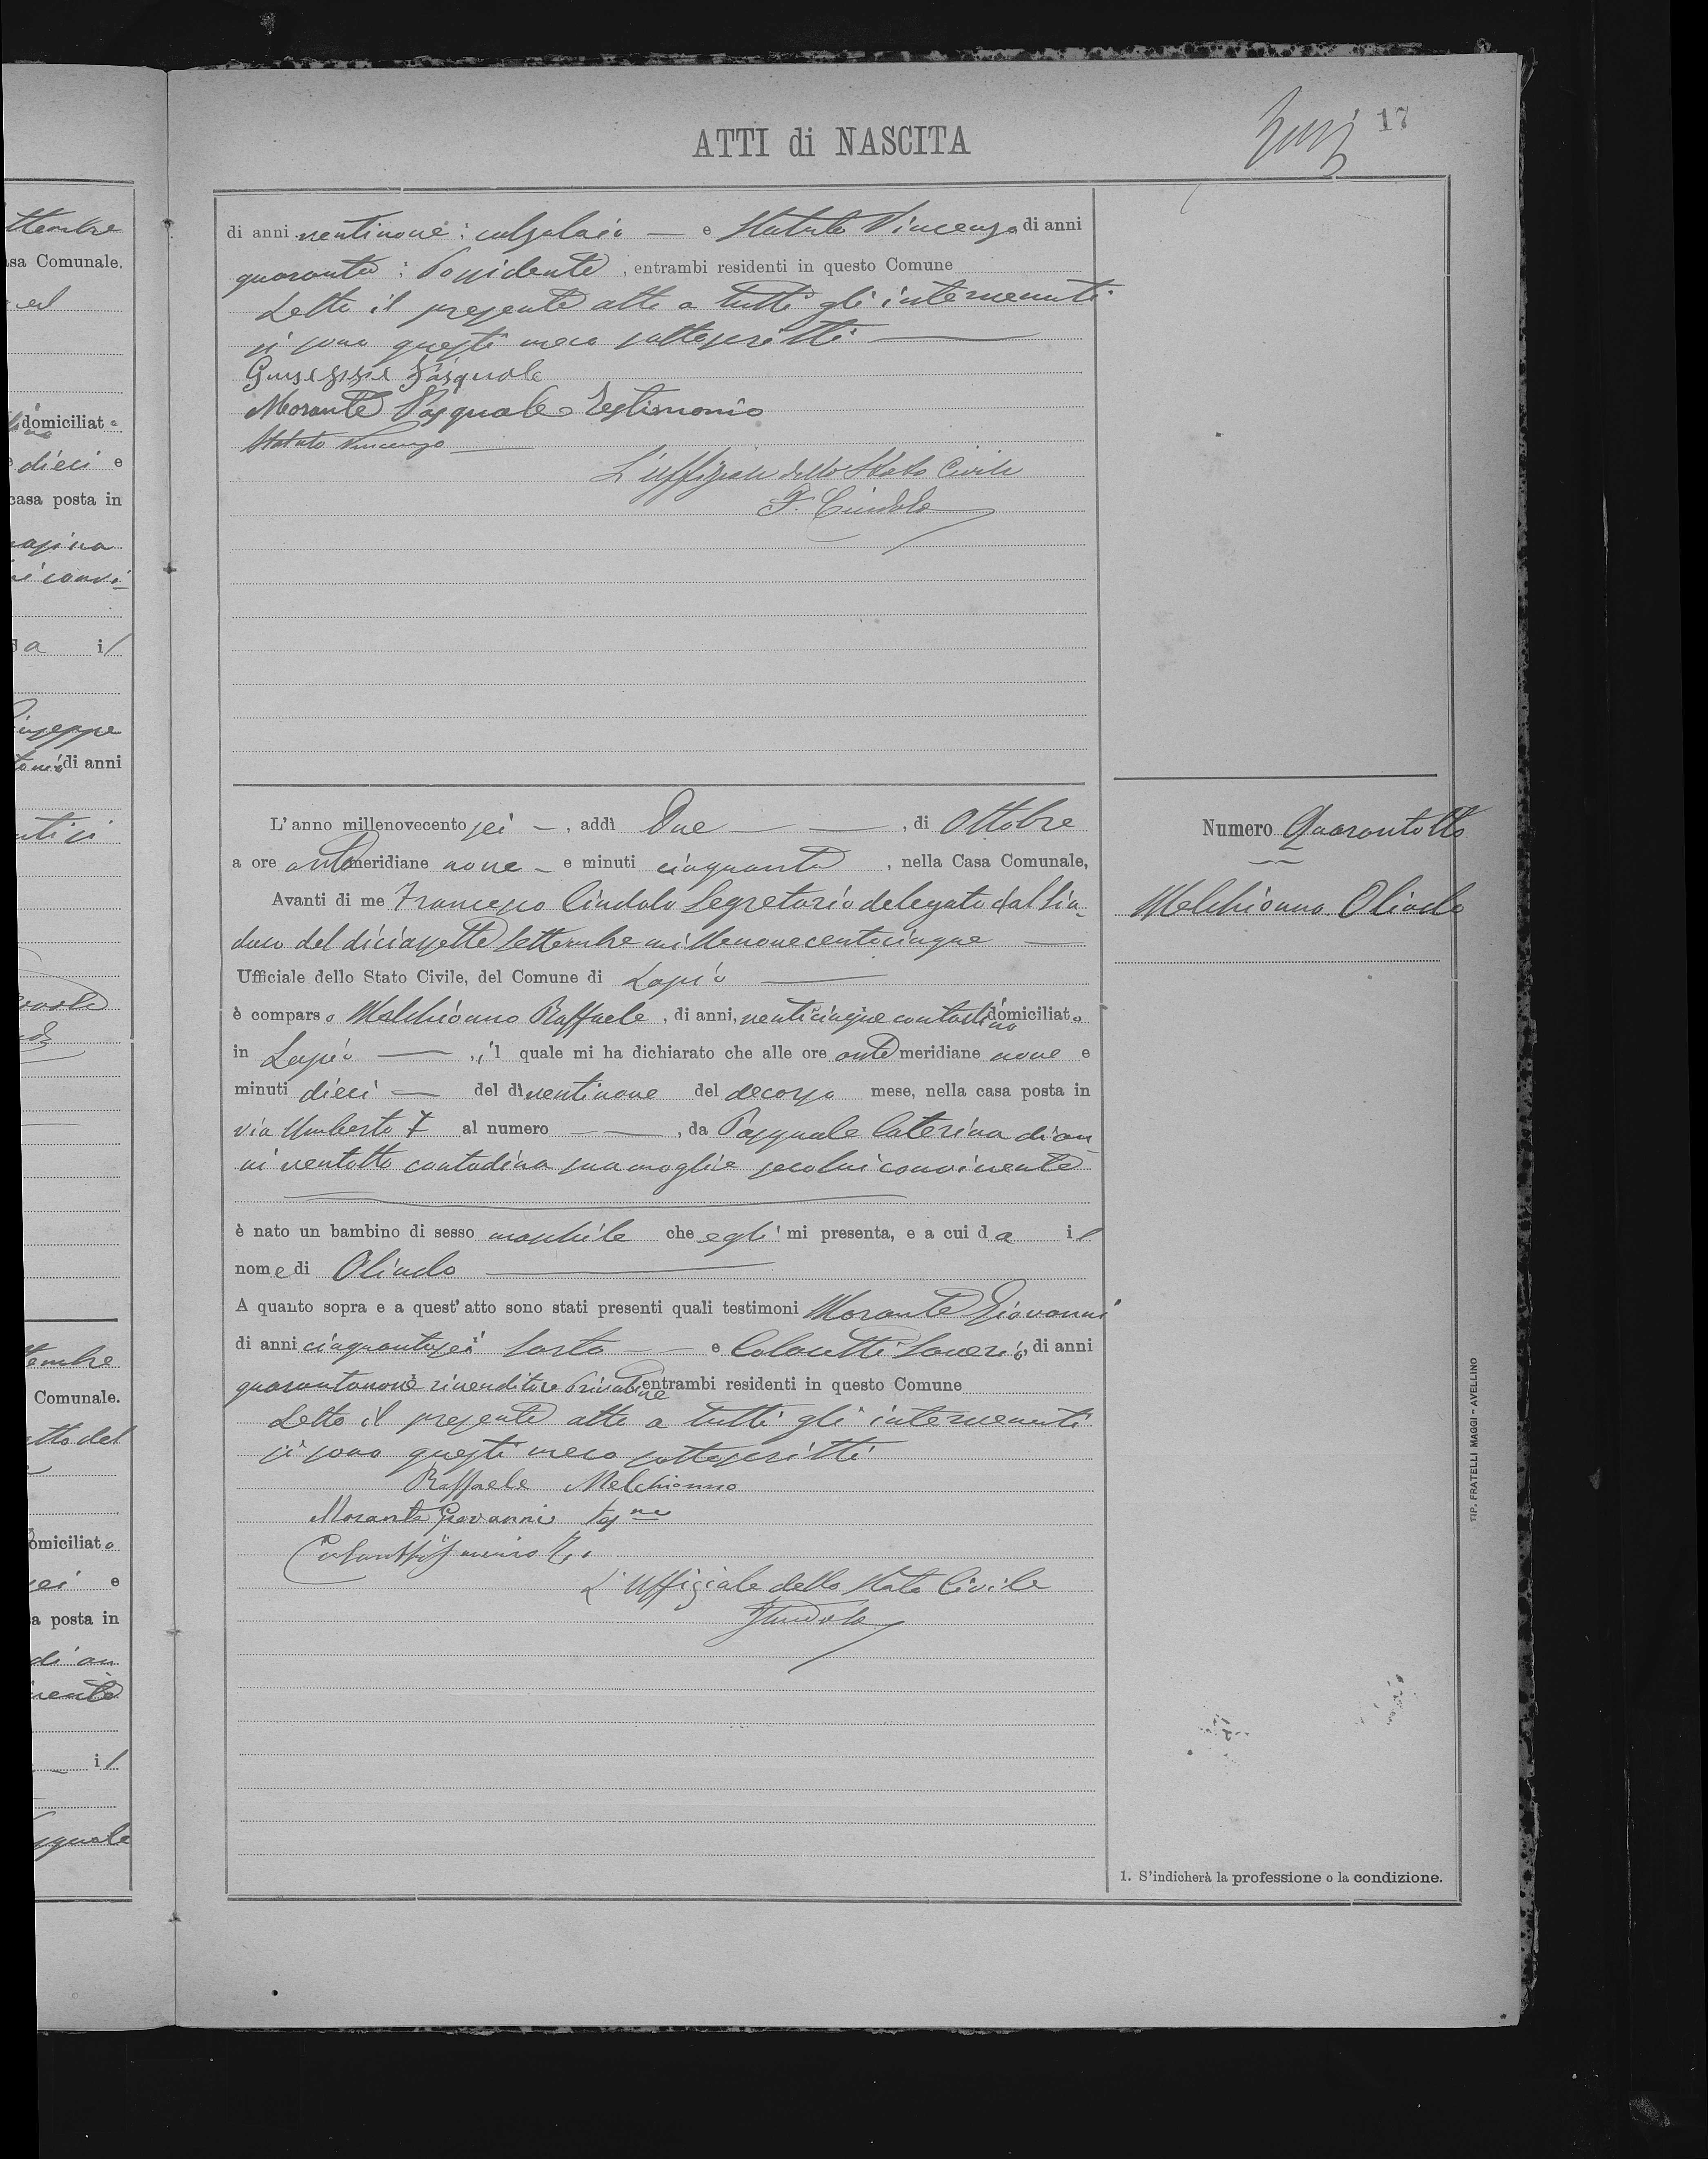 17
ATTI di NASCITA
ttembre
asa Comunale.
domiciliato
dieci e
casa posta in
da il
Giuseppe
di anni
tembre
Comunale.
omiciliato
sei e
a posta in
di an
il
squale
di anni ventinove : calzolaio — e Statuto Vincenzo di anni
quaranta : Possidente , entrambi residenti in questo Comune
Letto il presente atto a tutti gli intervenuti
si sono questi meco sottoscritti —
Giuseppe Pasquale
Morante Pasquale Testimonio
Statuto Vincenzo
L'uffiziale dello Stato Civile
F. Cindolo
L'anno millenovecento sei — , addì Due — — , di Ottobre
a ore antemeridiane nove — e minuti cinquanta , nella Casa Comunale,
Avanti di me Francesco Cindolo Segretario delegato dal Sin-
daco del diciassette settembre millenovecentocinque —
Ufficiale dello Stato Civile, del Comune di Lapio —
è comparso Melchionno Raffaele , di anni, venticinque contadino domiciliato
in Lapio — , il quale mi ha dichiarato che alle ore ante meridiane nove e
minuti dieci — del dì ventinove del decorso mese, nella casa posta in
via Umberto I al numero — — , da Pasquale Caterina di an
ni ventotto contadina sua moglie seco lui convivente
è nato un bambino di sesso maschile che egli mi presenta, e a cui da il
nome di Olindo —
A quanto sopra e a quest' atto sono stati presenti quali testimoni Morante Giovanni
di anni cinquantasei Sarto — — e Colantti Saverio, di anni
quarantanove rivenditore Privative entrambi residenti in questo Comune
Letto il presente atto a tutti gli intervenuti
si sono questi meco sottoscritti
Raffaele Melchionno
Morante Giovanni tesne
L'Uffiziale dello Stato Civile
FCindolo
Numero Quarantotto
Melchionno Olindo
1. S'indicherà la professione o la condizione.
TIP. FRATELLI MAGGI - AVELLINO